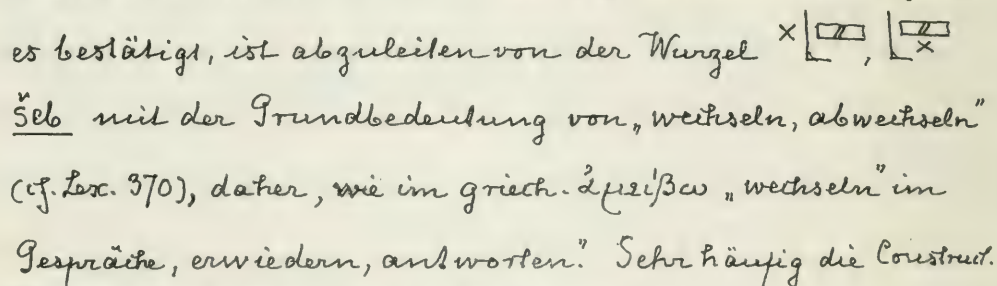 es bestätigt, ist abzuleiten von der Wurzel
šeb mit der Grundbedeutung von „wechseln, abwechseln"
(cf. Lex. 370), daher, wie im griech. ἀμείβω „wechseln" im
Gespräche, erwiedern, antworten." Sehr häufig die Construct.